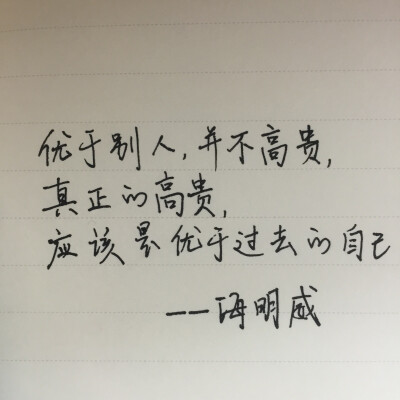 优于别人,并不高贵,
真正的高贵,
应该是优于过去的自己
——海明威